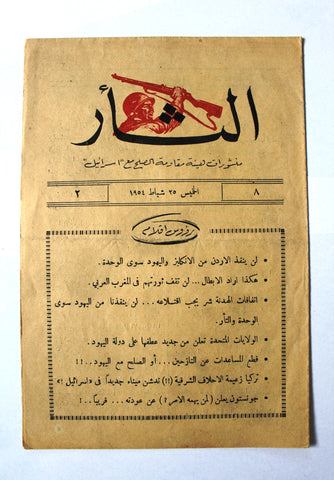 الثأر
منشورات هيئة مقاومة الصلح مع "اسرائيل"
٨
الخميس ٢٥ شباط ١٩٥٤
٢
رؤوس اقلام
• لن ينقذ الاردن من الانكليز واليهود سوى الوحدة.
• هكذا اراد الابطال... لن تقف ثورتهم في المغرب العربي.
• اتفاقات الهدنة شر يجب اقتلاعه... لن ينقذنا من اليهود سوى
الوحدة والثأر.
• الولايات المتحدة تعلن من جديد عطفها على دولة اليهود.
• قطع المساعدات عن النازحين... أو الصلح مع اليهود..!!
• تركيا زعيمة الاحلاف الشرقية (!!) تدشن ميناء جديداً في «اسرائيل»!
• جونستون يعلن (لمن يهمه الامر؟) عن عودته... قريباً..!